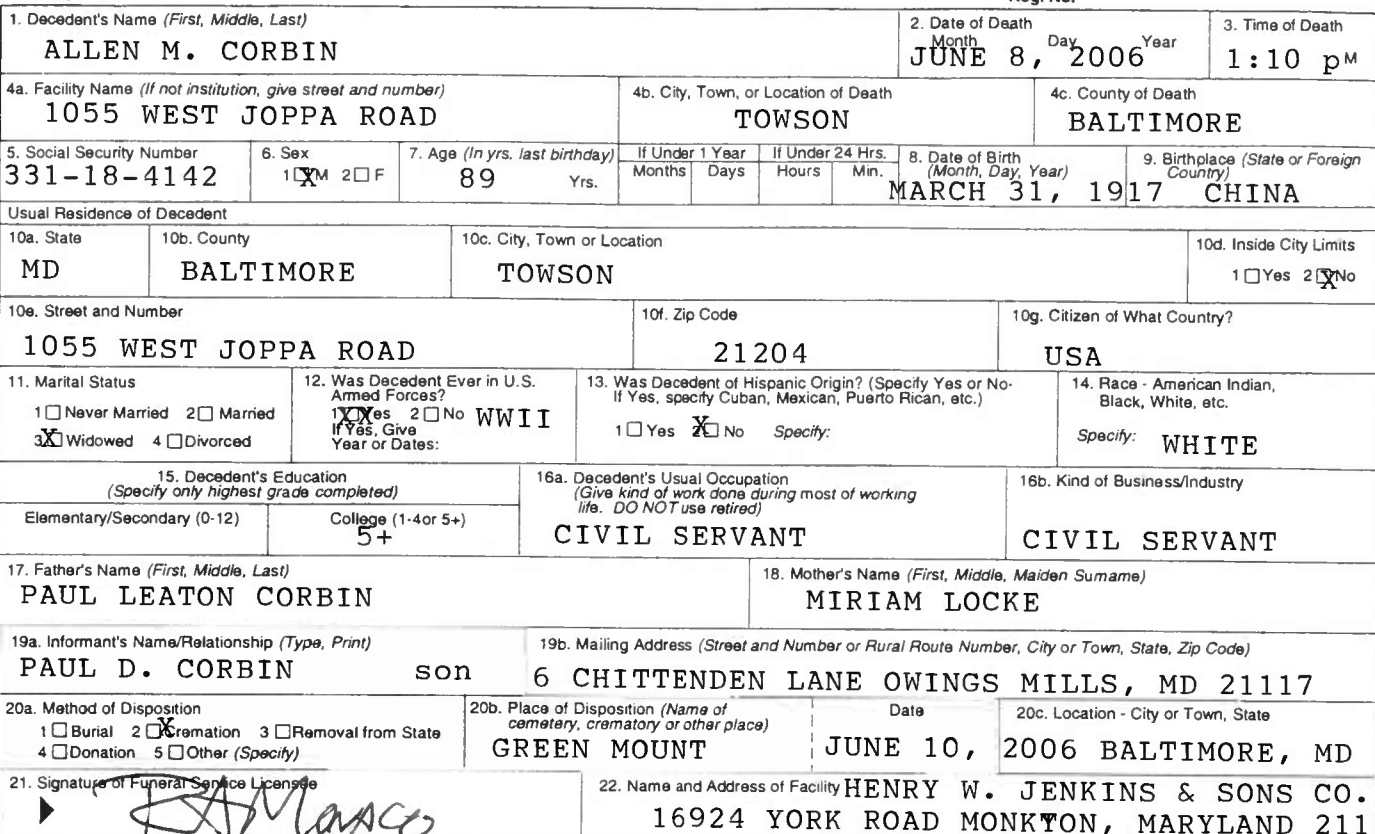 1. Decedent's Name (First, Middle, Last)
ALLEN M. CORBIN
2. Date of Death
Month Day Year
JUNE 8, 2006
3. Time of Death
1:10 pM
4a. Facility Name (If not institution, give street and number)
1055 WEST JOPPA ROAD
4b. City, Town, or Location of Death
TOWSON
4c. County of Death
BALTIMORE
5. Social Security Number
331-18-4142
6. Sex
1☒M 2☐F
7. Age (In yrs. last birthday)
89 Yrs.
If Under 1 Year
Months Days
If Under 24 Hrs.
Hours Min.
8. Date of Birth
(Month, Day, Year)
MARCH 31, 1917
9. Birthplace (State or Foreign
Country)
CHINA
Usual Residence of Decedent
10a. State
MD
10b. County
BALTIMORE
10c. City, Town or Location
TOWSON
10d. Inside City Limits
1☐Yes 2☒No
10e. Street and Number
1055 WEST JOPPA ROAD
10f. Zip Code
21204
10g. Citizen of What Country?
USA
11. Marital Status
1☐Never Married 2☐ Married
3☒Widowed 4☐Divorced
12. Was Decedent Ever in U.S.
Armed Forces?
1☒Yes 2☐No WWII
If Yes, Give
Year or Dates:
13. Was Decedent of Hispanic Origin? (Specify Yes or No-
If Yes, specify Cuban, Mexican, Puerto Rican, etc.)
1☐Yes 2☒No Specify:
14. Race - American Indian,
Black, White, etc.
Specify: WHITE
15. Decedent's Education
(Specify only highest grade completed)
Elementary/Secondary (0-12)
College (1-4or 5+)
5+
16a. Decedent's Usual Occupation
(Give kind of work done during most of working
life. DO NOT use retired)
CIVIL SERVANT
16b. Kind of Business/Industry
CIVIL SERVANT
17. Father's Name (First, Middle, Last)
PAUL LEATON CORBIN
18. Mother's Name (First, Middle, Maiden Surname)
MIRIAM LOCKE
19a. Informant's Name/Relationship (Type, Print)
PAUL D. CORBIN son
19b. Mailing Address (Street and Number or Rural Route Number, City or Town, State, Zip Code)
6 CHITTENDEN LANE OWINGS MILLS, MD 21117
20a. Method of Disposition
1☐Burial 2☒Cremation 3☐Removal from State
4☐Donation 5☐Other (Specify)
20b. Place of Disposition (Name of
cemetery, crematory or other place)
GREEN MOUNT
Date
JUNE 10, 2006
20c. Location - City or Town, State
BALTIMORE, MD
21. Signature of Funeral Service Licensee
22. Name and Address of Facility HENRY W. JENKINS & SONS CO.
16924 YORK ROAD MONKTON, MARYLAND 211